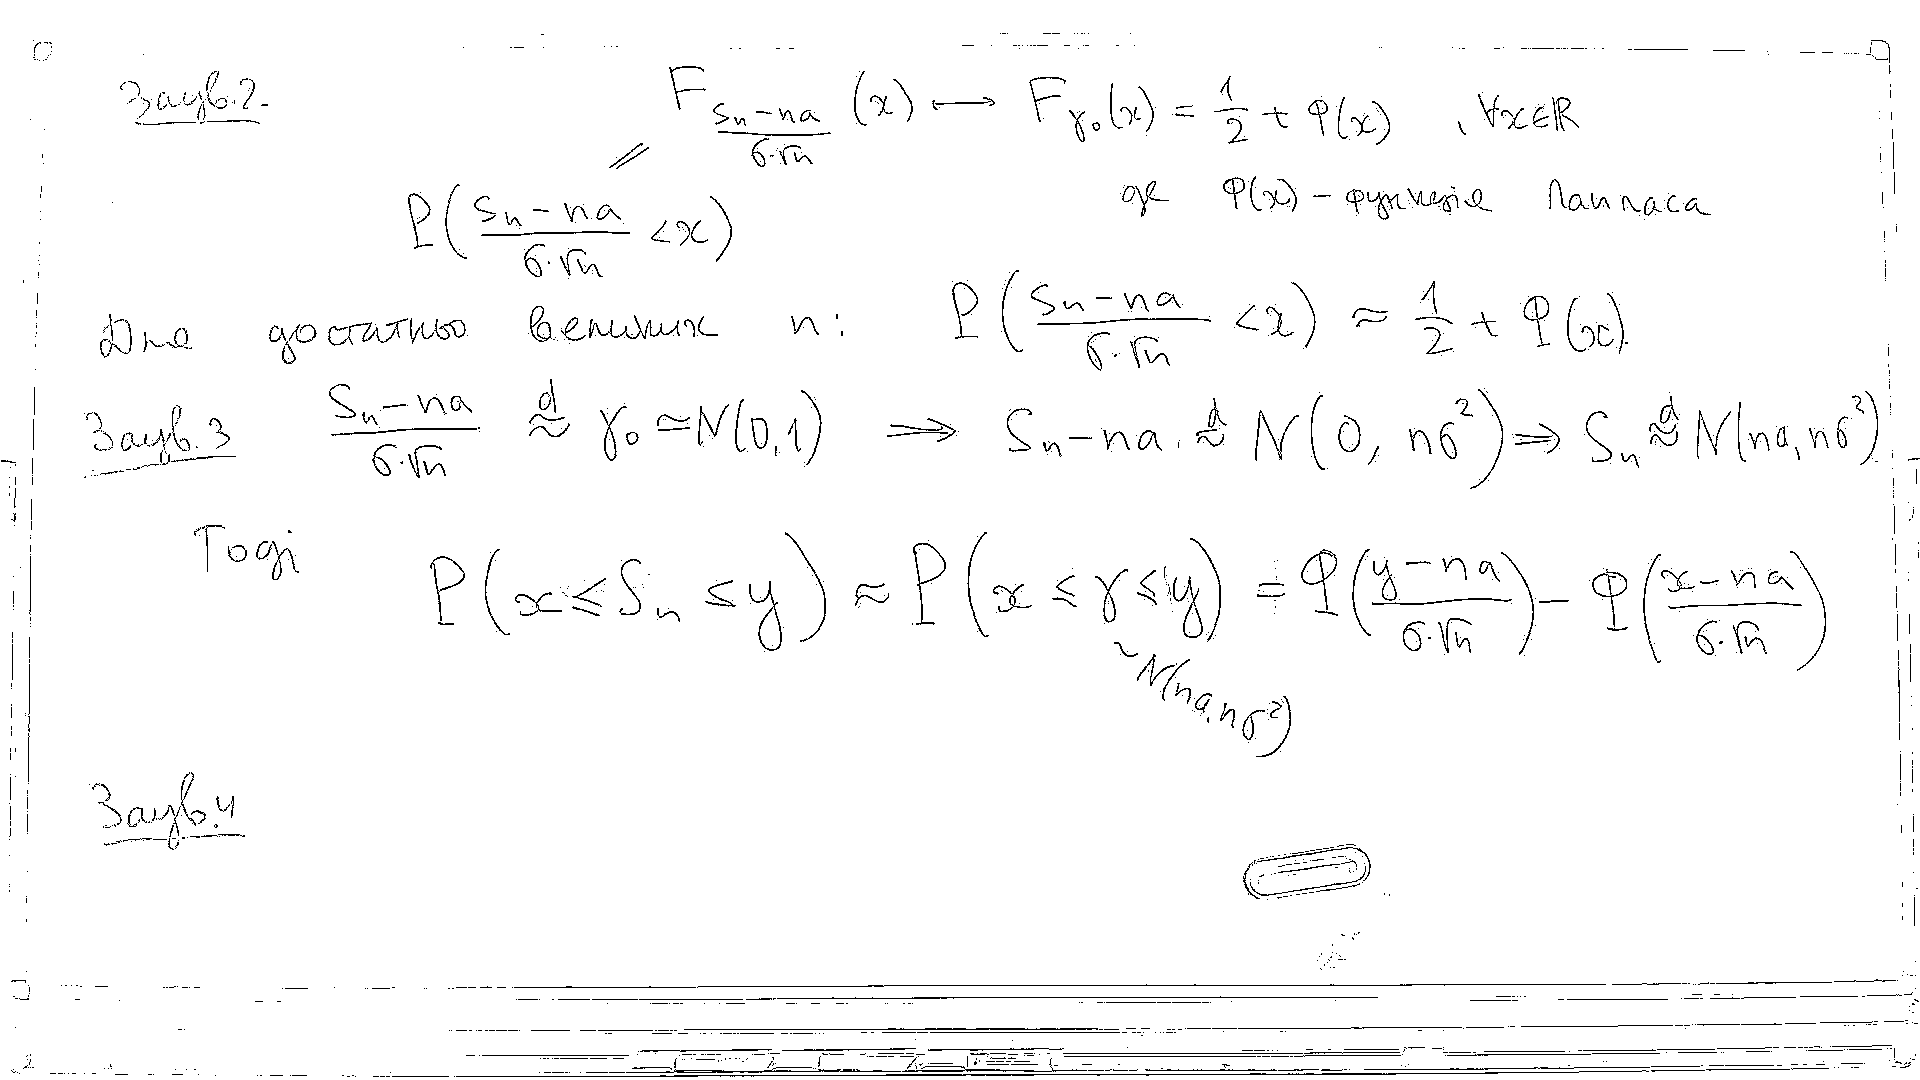 Заув.2. F_{\frac{S_n-na}{σ·√n}}(x) ⟶ F_{γ_0}(x) = \frac{1}{2} + Φ(x), ∀x∈ℝ
// де Φ(x) – функція Лапласа
P(\frac{S_n-na}{σ·√n} < x)
Для достатньо великих n: P(\frac{S_n-na}{σ·√n} < x) ≈ \frac{1}{2} + Φ(x).
Заув.3 \frac{S_n-na}{σ·√n} \overset{d}{≈} γ_0 ≃ N(0,1) ⟹ S_n-na \overset{d}{≈} N(0, nσ²) ⟹ S_n \overset{d}{≈} N(na, nσ²)
Тоді P(x ≤ S_n ≤ y) ≈ P(x ≤ γ ≤ y) = Φ(\frac{y-na}{σ·√n}) - Φ(\frac{x-na}{σ·√n})
~N(na, nσ²)
Заув.4